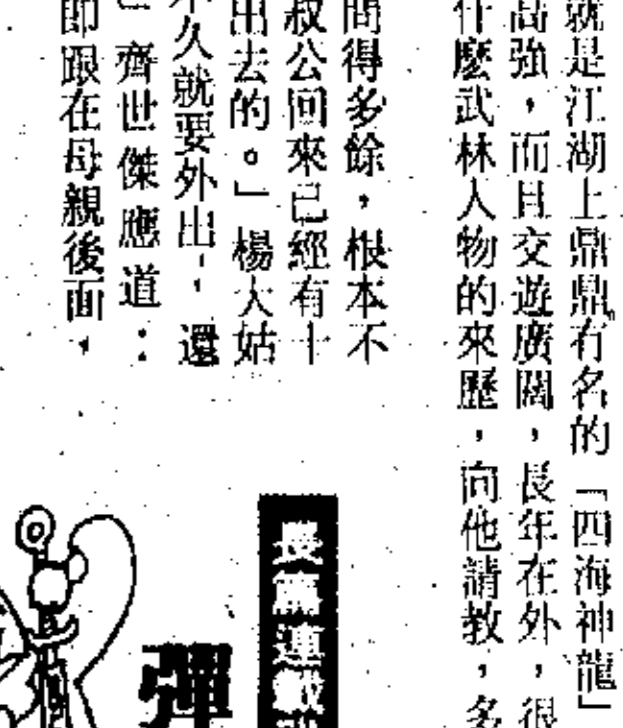 就是江湖上鼎鼎有名的「四海神龍」
高強,而且交遊廣闊,長年在外,很
什麼武林人物的來歷,向他請教,多
問得多餘,根本不
叔公回來已經有十
出去的。」楊大姑
不久就要外出,還
齊世傑應道:
即跟在母親後面,
長篇連載
彈